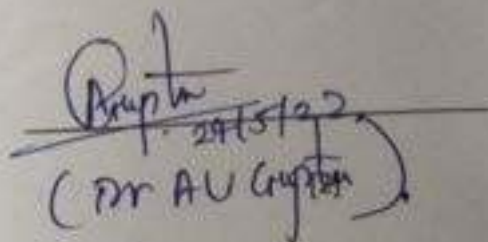 Gupta
29/5/22
(Dr AU Gupta)